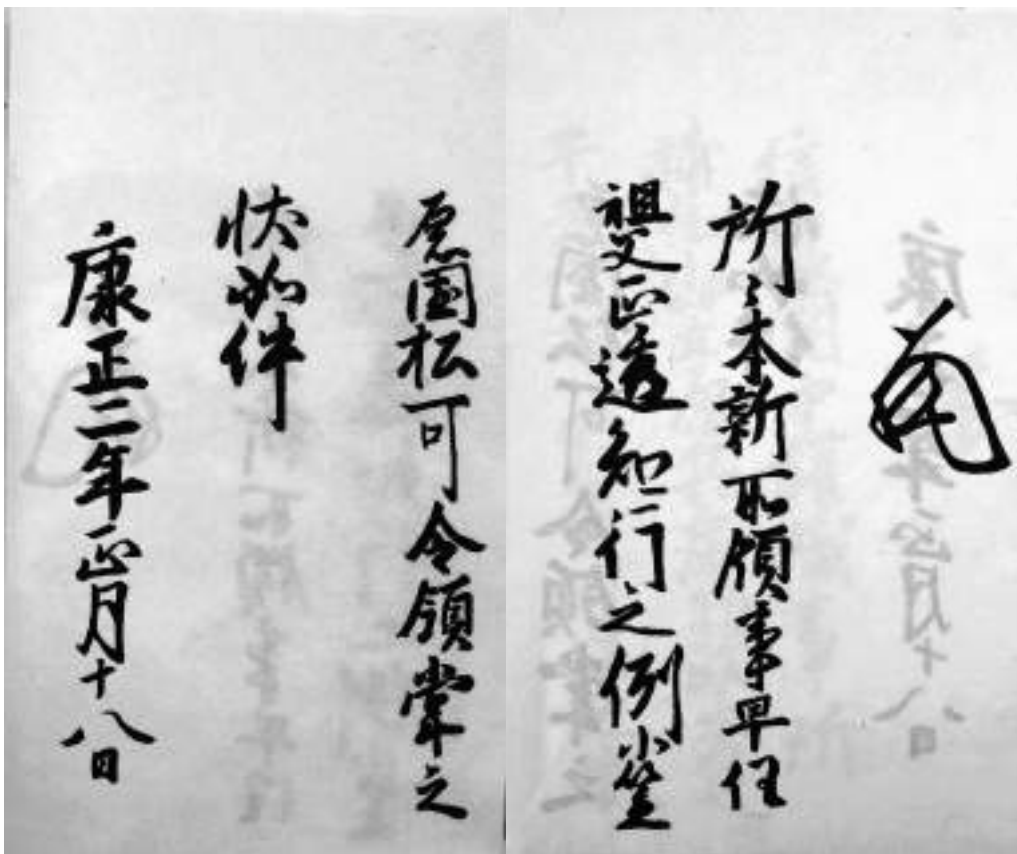 所々本新所領事早任
祖父正透知行之例小笠
原國松可令領掌之
状如件
康正二年正月十八日